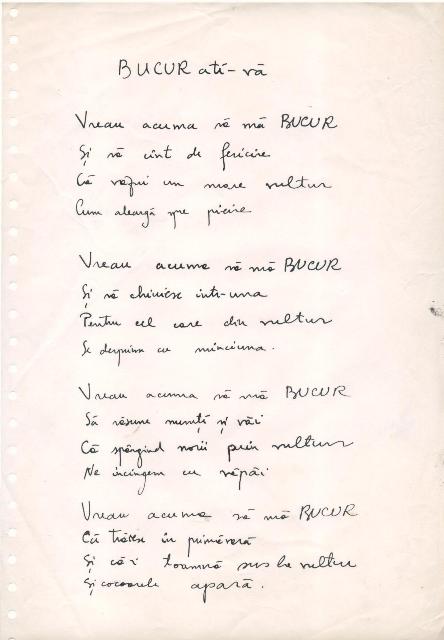 BUCUR ati-vă
Vreau acuma să mă BUCUR
Și să cînt de fericire
Că văzui un mare vultur
Cum aleargă spre pieire
Vreau acuma să mă BUCUR
Și să chiuiesc într-una
Pentru cel care din vultur
Se desprinse cu minciuna.
Vreau acuma să mă BUCUR
Să răsune munți și văi
Că spărgînd norii prin vultur
Ne încingem cu văpăi
Vreau acuma să mă BUCUR
Că trăiesc în primăvară
Și că-i toamnă sus la vultur
Și cocoarele apară.